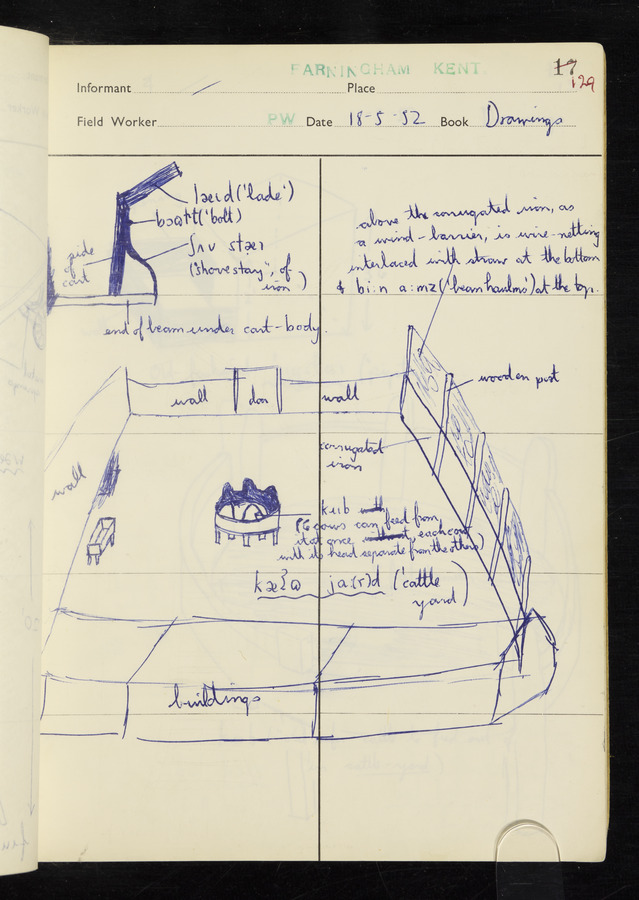 FARNINGHAM KENT.
17
129
Informant
Place
Field Worker PW Date 18-5-52 Book Drawings
læɪd ('lade')
('bolt')
side
of
cart
ʃʌv stæɪ
("shove stay", of
iron)
end of beam under cart-body.
above the corrugated iron, as
a wind-barrier, is wire-netting
interlaced with straw at the bottom
& bi:n a:mz ('beam haulms') at the top.
wall door wall
wooden post
wall
corrugated
iron
kɪʊb with
(6 cows can feed from
it at once without, each cow
with its head separate from the others)
ja:(r)d ('cattle
yard')
buildings